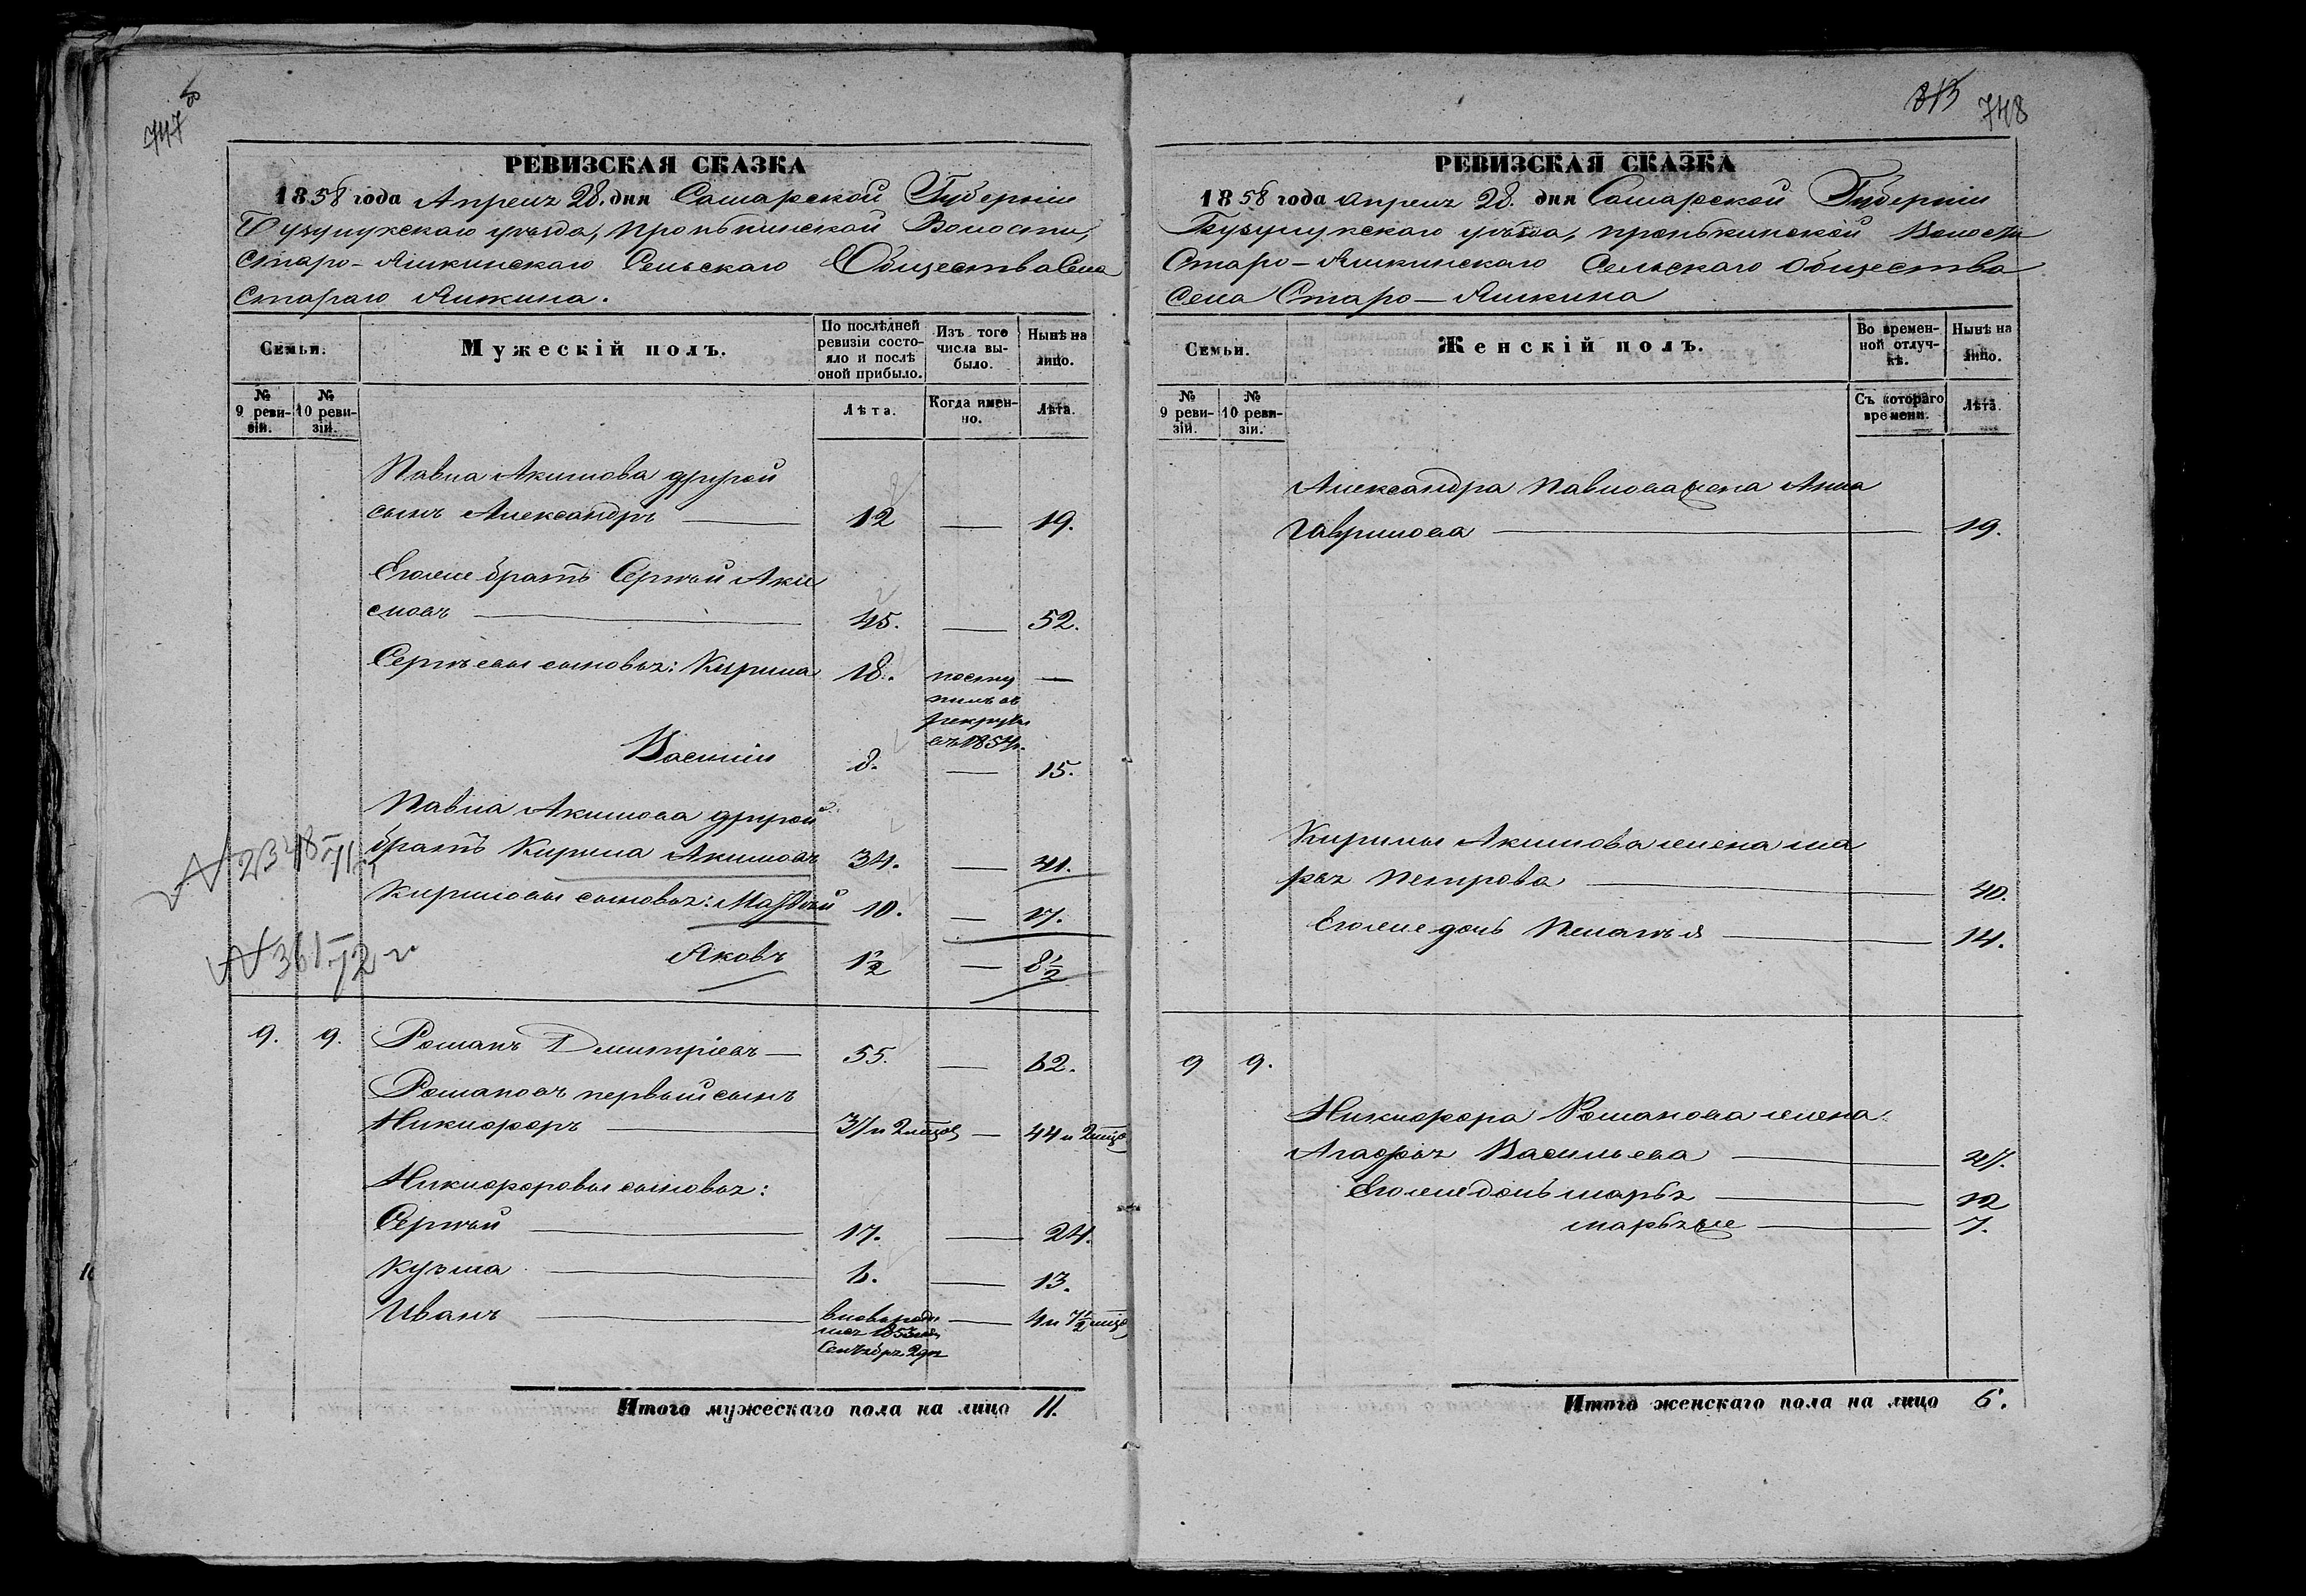 747
РЕВИЗСКАЯ СКАЗКА
1858 года Апреля 28. дня Самарской Губерніи
Бузулукскаго уѣзда, Пронькинской Волости,
Старо-Яшкинскаго Сельскаго Общества Села
Стараго Яшкина.
Семьи.
Мужескій полъ.
По послѣдней ревизіи состояло и послѣ оной прибыло.
Изъ того числа выбыло.
Нынѣ на лицо.
№ 9 ревизіи.
№ 10 ревизіи.
Лѣта.
Когда именно.
Лѣта.
Павла Акимова другой
сынъ Александръ — 12 — 19.
Его же братъ Сергѣй Аки
мовъ — 45. — 52.
Сергѣевы сыновья: Кирила 18. поступилъ въ рекруты въ 1854г. —
Василій 8. — 15.
Павла Акимова другой
братъ Кирила Акимовъ 34. — 41.
Кириловы сыновья: Матвѣй 10. — 17.
Яковъ 1½ — 8½
№ 2348 71 г
№ 361 72 г
9. 9. Романъ Дмитріевъ — 55. — 62.
Романовъ первый сынъ
Никифоръ — 37 и 2 мѣся — 44 и 2 мѣся
Никифоровы сыновья:
Сергѣй — 17. — 24.
Кузма — 6. — 13.
Иванъ — вновь роди
лся 1853 года
Сентября 2 дня — 4 и 7½ мѣся
Итого мужескаго пола на лицо 11.
813 748
РЕВИЗСКАЯ СКАЗКА
1858 года апреля 28. дня Самарской Губерніи
Бузулукскаго уѣзда, Пронькинской Волости
Старо-Яшкинскаго Сельскаго Общества
Села Старо-Яшкина
Семьи.
Женскій полъ.
Во временной отлучкѣ.
Нынѣ на лицо.
№ 9 ревизіи.
№ 10 ревизіи.
Съ котораго времени.
Лѣта.
Александра Павлова жена Анна
Гаврилова — 19.
Кирилы Акимова жена Ма
рья Петрова — 40.
Его же дочь Пелагѣя — 14.
9 9.
Никифора Романова жена
Агафья Васильева — 47.
Его же дочь Марья — 12
Марья же — 7.
Итого женскаго пола на лицо 6.